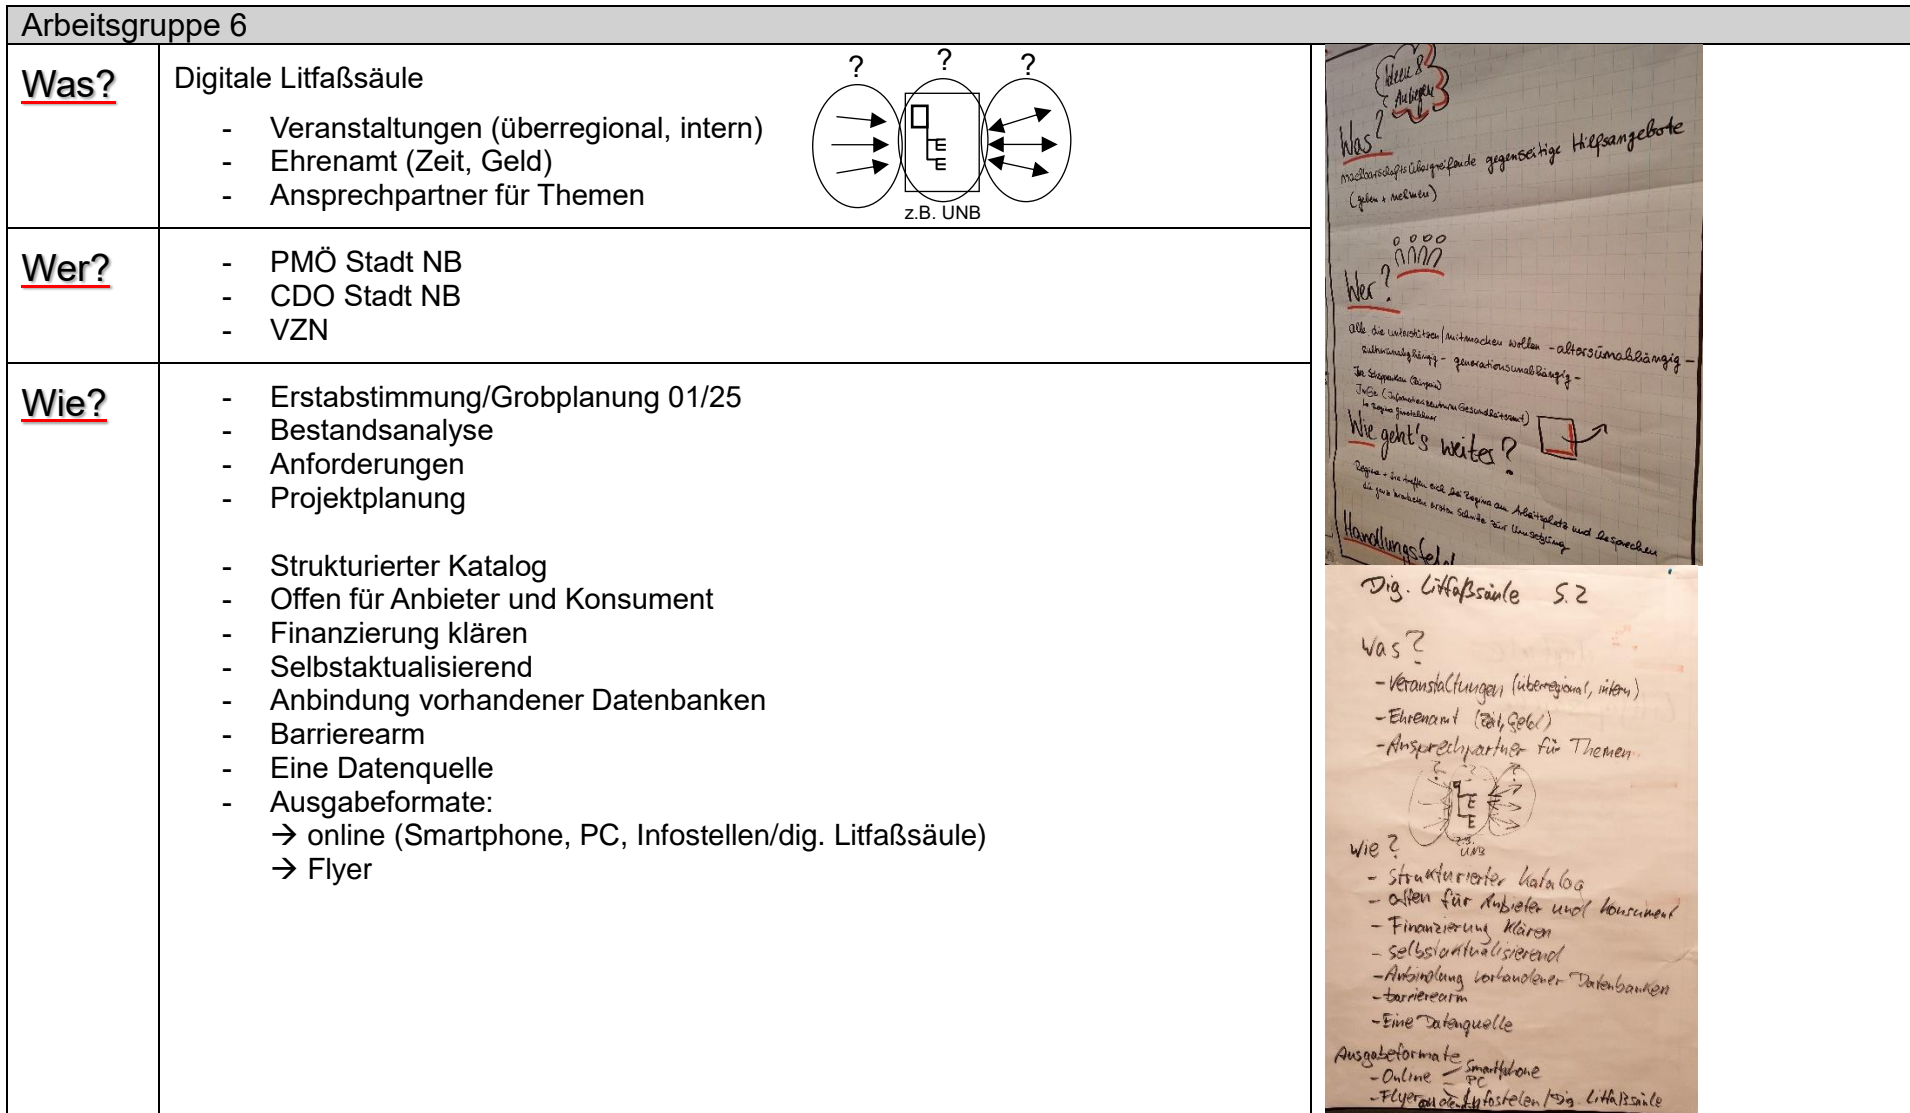 Arbeitsgruppe 6
Was?
Digitale Litfaßsäule
- Veranstaltungen (überregional, intern)
- Ehrenamt (Zeit, Geld)
- Ansprechpartner für Themen
? ? ?
z.B. UNB
Wer?
- PMÖ Stadt NB
- CDO Stadt NB
- VZN
Wie?
- Erstabstimmung/Grobplanung 01/25
- Bestandsanalyse
- Anforderungen
- Projektplanung
- Strukturierter Katalog
- Offen für Anbieter und Konsument
- Finanzierung klären
- Selbstaktualisierend
- Anbindung vorhandener Datenbanken
- Barrierearm
- Eine Datenquelle
- Ausgabeformate:
→ online (Smartphone, PC, Infostellen/dig. Litfaßsäule)
→ Flyer
Ideen &
Anliegen
Was?
nachbarschaftsübergreifende gegenseitige Hilfsangebote
(geben + nehmen)
Wer?
alle die unterstützen/mitmachen wollen - altersunabhängig -
kulturunabhängig - generationsunabhängig -
(Informationszentrum Gesundheitsamt)
Wie geht's weiter?
Regine + treffen sich bei Regina am Arbeitsplatz und besprechen
die ganz konkreten ersten Schritte zur Umsetzung
Handlungsfeld
Dig. Litfaßsäule S.2
Was?
- Veranstaltungen (überregional, intern)
- Ehrenamt (Zeit, Geld)
- Ansprechpartner für Themen
? ? ?
E
E
z.B.
UNB
Wie?
- strukturierter Katalog
- offen für Anbieter und Konsument
- Finanzierung klären
- selbstaktualisierend
- Anbindung vorhandener Datenbanken
- barrierearm
- Eine Datenquelle
Ausgabeformate
- Online - Smartphone
- PC
- Flyer Infostelen/Dig. Litfaßsäule